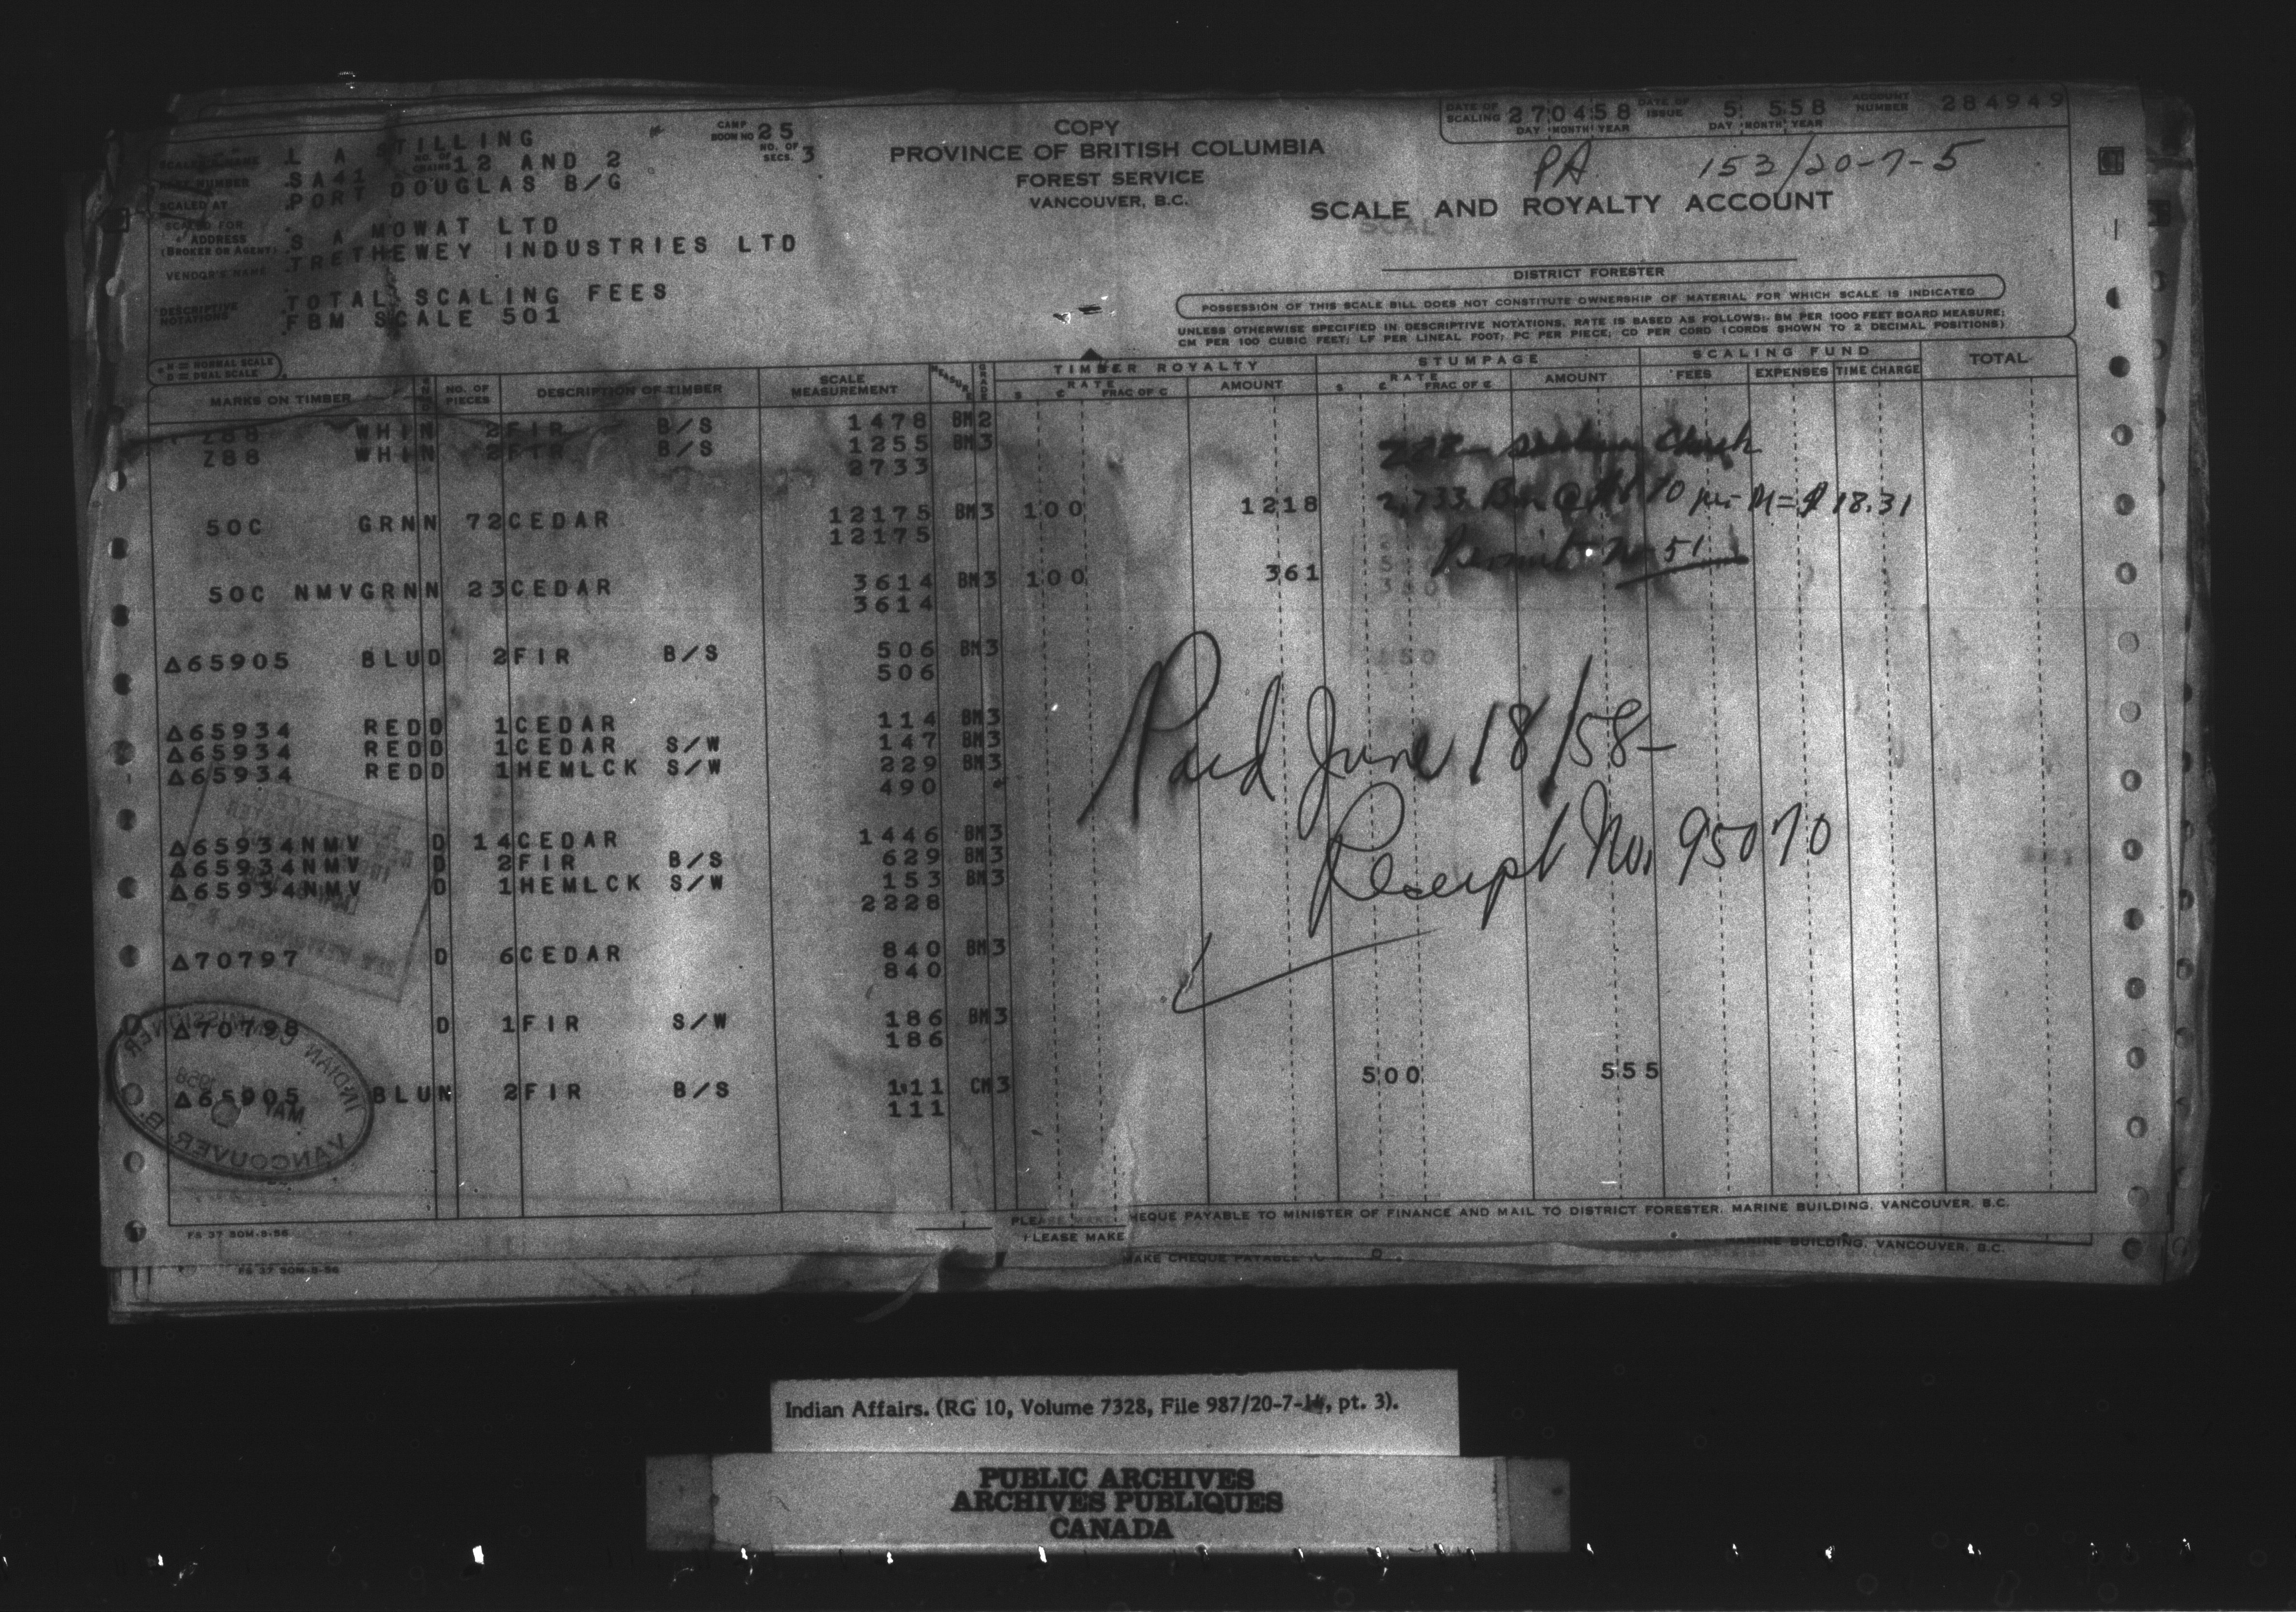 SCALER'S NAME L A STILLING
CAMP BOOM NO 25
NO. OF SECS. 3
SA41 NO. OF 12 AND 2
SCALED AT PORT DOUGLAS B/G
SCALED FOR
ADDRESS S A MOWAT LTD
(BROKER OR AGENT)
VENDOR'S NAME TRETHEWEY INDUSTRIES LTD
DESCRIPTIVE NOTATIONS TOTAL SCALING FEES
FBM SCALE 501
COPY
PROVINCE OF BRITISH COLUMBIA
FOREST SERVICE
VANCOUVER, B.C.
DATE OF SCALING 270458 DATE OF ISSUE 5 558 ACCOUNT NUMBER 284949
DAY MONTH YEAR DAY MONTH YEAR
PA 153/20-7-5
SCALE AND ROYALTY ACCOUNT
DISTRICT FORESTER
POSSESSION OF THIS SCALE BILL DOES NOT CONSTITUTE OWNERSHIP OF MATERIAL FOR WHICH SCALE IS INDICATED
UNLESS OTHERWISE SPECIFIED IN DESCRIPTIVE NOTATIONS, RATE IS BASED AS FOLLOWS:- BM PER 1000 FEET BOARD MEASURE;
CM PER 100 CUBIC FEET; LF PER LINEAL FOOT; PC PER PIECE; CD PER CORD (CORDS SHOWN TO 2 DECIMAL POSITIONS)
N = NORMAL SCALE
D = DUAL SCALE
MARKS ON TIMBER NO. OF PIECES DESCRIPTION OF TIMBER SCALE MEASUREMENT MEASURE GRADE TIMBER ROYALTY STUMPAGE SCALING FUND TOTAL
$ RATE ¢ FRAC OF ¢ AMOUNT $ RATE ¢ FRAC OF ¢ AMOUNT FEES EXPENSES TIME CHARGE
Z88 WHIN 2 FIR B/S 1478 BM 2
Z88 WHIN 2 FIR B/S 1255 BM 3
2733
2,733 Bm @ per M = $ 18.31
50C GRNN 72 CEDAR 12175 BM 3 100 1218
12175
Permit No 51
50C NMVGRNN 23 CEDAR 3614 BM 3 100 361
3614
Δ65905 BLUD 2 FIR B/S 506 BM 3
506
Δ65934 REDD 1 CEDAR 114 BM 3
Δ65934 REDD 1 CEDAR S/W 147 BM 3
Δ65934 REDD 1 HEMLCK S/W 229 BM 3
490
Paid June 18/58-
Receipt No. 95070
Δ65934NMV D 14 CEDAR 1446 BM 3
Δ65934NMV D 2 FIR B/S 629 BM 3
Δ65934NMV D 1 HEMLCK S/W 153 BM 3
2228
Δ70797 D 6 CEDAR 840 BM 3
840
Δ70798 D 1 FIR S/W 186 BM 3
186
Δ65905 BLUN 2 FIR B/S 111 CM 3 500 555
111
INDIAN COMMISSIONER
MAY 1958
VANCOUVER, B.C.
PLEASE MAKE CHEQUE PAYABLE TO MINISTER OF FINANCE AND MAIL TO DISTRICT FORESTER, MARINE BUILDING, VANCOUVER, B.C.
FS 37 50M-8-56
PLEASE MAKE
MAKE CHEQUE PAYABLE
MARINE BUILDING, VANCOUVER, B.C.
FS 37 50M-8-56
Indian Affairs. (RG 10, Volume 7328, File 987/20-7-14, pt. 3).
PUBLIC ARCHIVES
ARCHIVES PUBLIQUES
CANADA